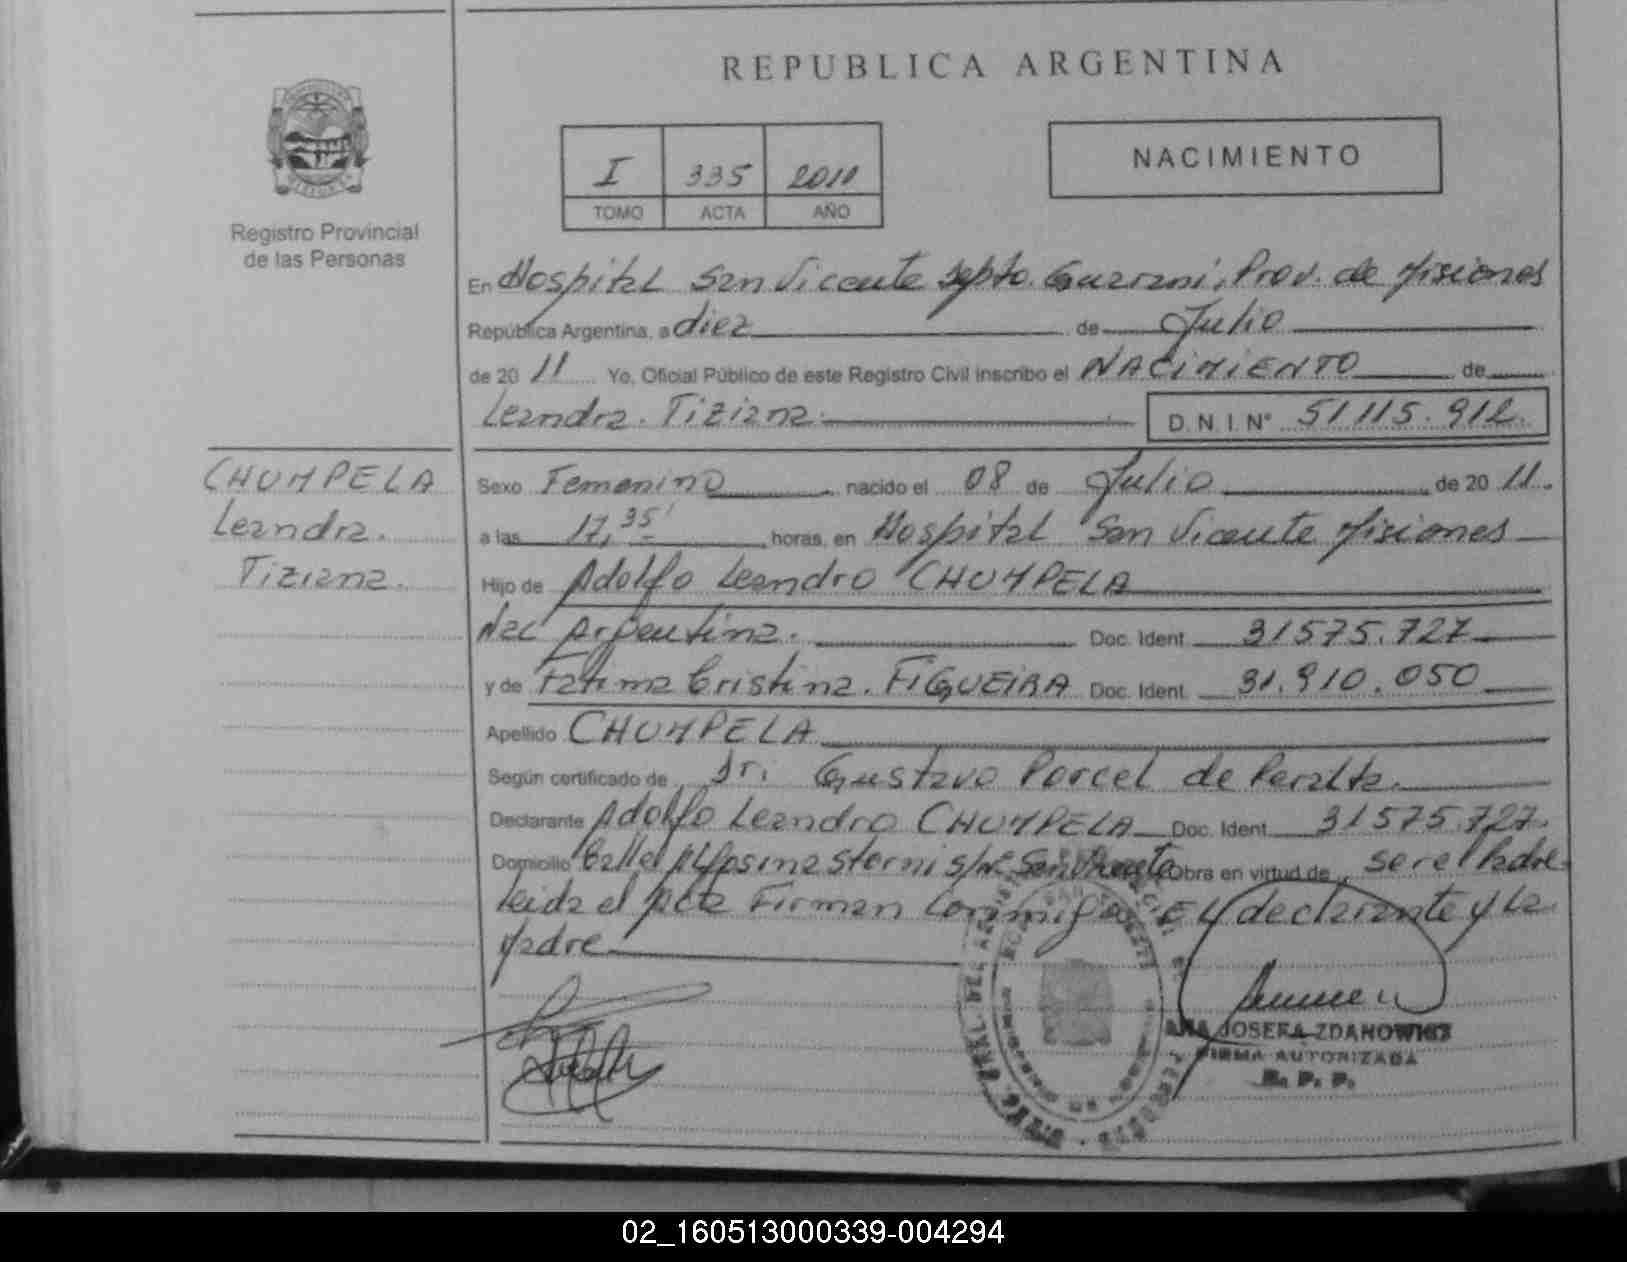 REPUBLICA ARGENTINA
I 335 2011
TOMO ACTA AÑO
NACIMIENTO
Registro Provincial
de las Personas
En Hospital San Vicente Depto. Guaraní, Prov. de Misiones
República Argentina, a diez de Julio
de 20 11 Yo, Oficial Público de este Registro Civil inscribo el NACIMIENTO de
Leandra Tiziana D.N.I. Nº 51115.912
CHUMPELA
Leandra.
Tiziana.
Sexo Femenino nacido el 08 de Julio de 20 11.
a las 17,35' horas, en Hospital San Vicente Misiones
Hijo de Adolfo Leandro CHUMPELA
Nac Argentina. Doc. Ident. 31575.727
y de Fatima Cristina. FIGUEIRA Doc. Ident. 31.910.050
Apellido CHUMPELA
Según certificado de Dr. Gustavo Porcel de Peralta.
Declarante Adolfo Leandro CHUMPELA Doc. Ident. 31575.727.
Domicilio Calle Alfosina Storni s/nº San Vicente Obra en virtud de ser el Padre
Leida el Acta Firman Conmigo El declarante y La
Madre
ANA JOSEFA ZDANOWICZ
FIRMA AUTORIZADA
R. P. P.
02_160513000339-004294